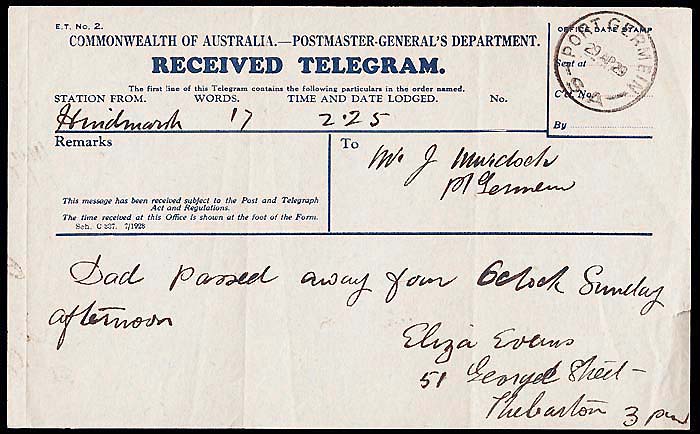 E.T. No. 2.
COMMONWEALTH OF AUSTRALIA.—POSTMASTER-GENERAL'S DEPARTMENT.
RECEIVED TELEGRAM.
The first line of this Telegram contains the following particulars in the order named.
STATION FROM. WORDS. TIME AND DATE LODGED. No.
Hindmarsh 17 2.25
OFFICE DATE STAMP
Sent at
By
PORT GERMEIN
29 AP 29
S.A
Remarks
This message has been received subject to the Post and Telegraph
Act and Regulations.
The time received at this Office is shown at the foot of the Form.
Sch. C 7/1928
To Mr J Murdock
Pt Germein
Dad passed away four Oclock Sunday
afternoon
Eliza Evans
51 George Street
Thebarton 3 pm